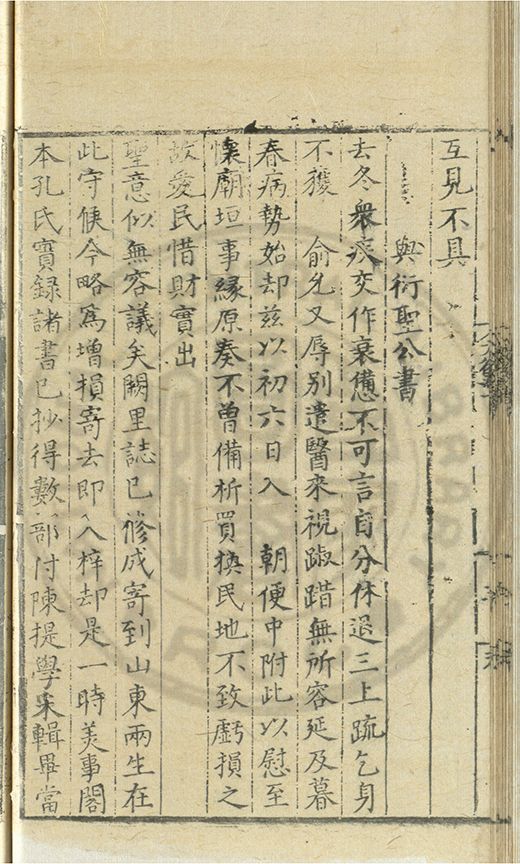 互見不具
與衍聖公書
去冬衆疾交作衰憊不可言自分休退三上疏乞身
不獲　俞允又辱別遣醫來視踧踖無所容延及暮
春病勢始却茲以初六日入　朝便中附此以慰至
懷廟垣事緣原奏不曾備析買換民地不致虧損之
故愛民惜財實出
聖意似無容議矣闕里誌已修成寄到山東兩生在
此守候今略爲增損寄去即入梓却是一時美事閣
本孔氏實録諸書已抄得數部付陳提學采輯畢當